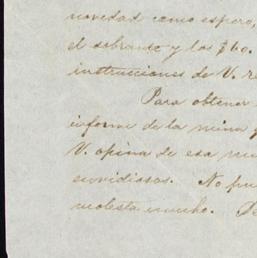 novedad como espero,
el sobrante y los $60.
instrucciones de V. re
Para obtener
informe de la mina y
V. opina de esa
envidiosos. No pue
molesta mucho. De